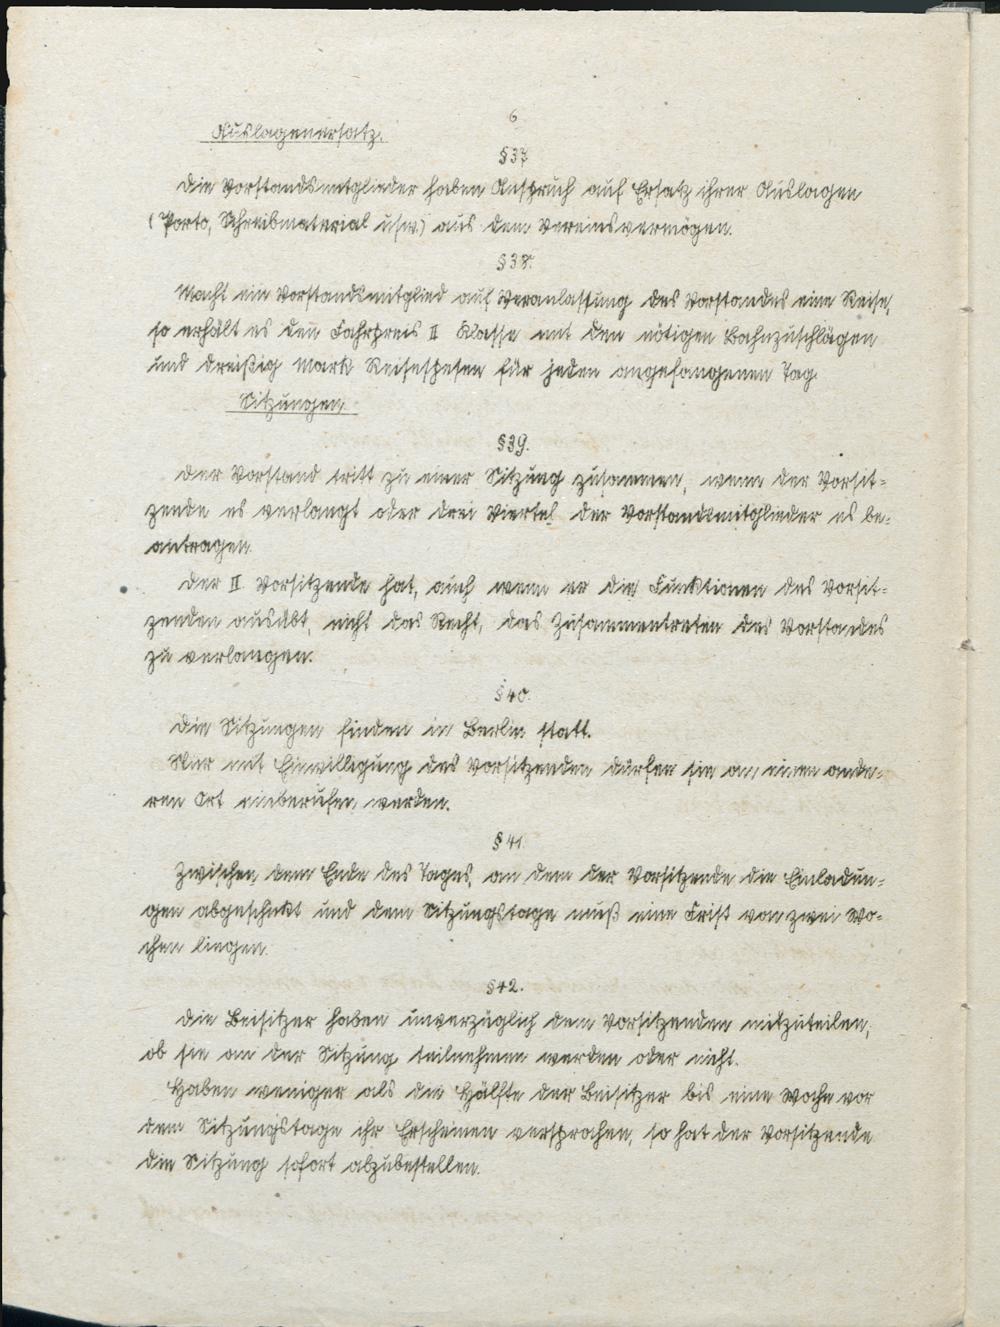 6
Auslagenersatz.
§ 37
Die Vorstandsmitglieder haben Anspruch auf Ersatz ihrer Auslagen
(Porto, Schreibmaterial usw.) aus dem Vereinsvermögen.
§ 38.
Macht ein Vorstandsmitglied auf Veranlassung des Vorstandes eine Reise,
so erhält es den Fahrpreis II Klasse mit den nötigen Bahnzuschlägen
und dreißig Mark Reisespesen für jeden angefangenen Tag.
Sitzungen
§ 39.
Der Vorstand tritt zu einer Sitzung zusammen, wenn der Vorsit-
zende es verlangt oder drei Viertel der Vorstandsmitglieder es be-
antragen.
Der II Vorsitzende hat, auch wenn er die Funktionen des Vorsit-
zenden ausübt, nicht das Recht, das Zusammentreten des Vorstandes
zu verlangen.
§ 40.
Die Sitzungen finden in Berlin statt.
Nur mit Einwilligung des Vorsitzenden dürfen sie an einen ande-
ren Ort einberufen werden.
§ 41
Zwischen dem Ende des Tages, an dem der Vorsitzende die Einladun-
gen abgeschickt und dem Sitzungstage muß eine Frist von zwei Wo-
chen liegen.
§ 42.
Die Beisitzer haben unverzüglich dem Vorsitzenden mitzuteilen,
ob sie an der Sitzung teilnehmen werden oder nicht.
Haben weniger als die Hälfte der Beisitzer bis eine Woche vor
dem Sitzungstage ihr Erscheinen versprochen, so hat der Vorsitzende
die Sitzung sofort abzubestellen.